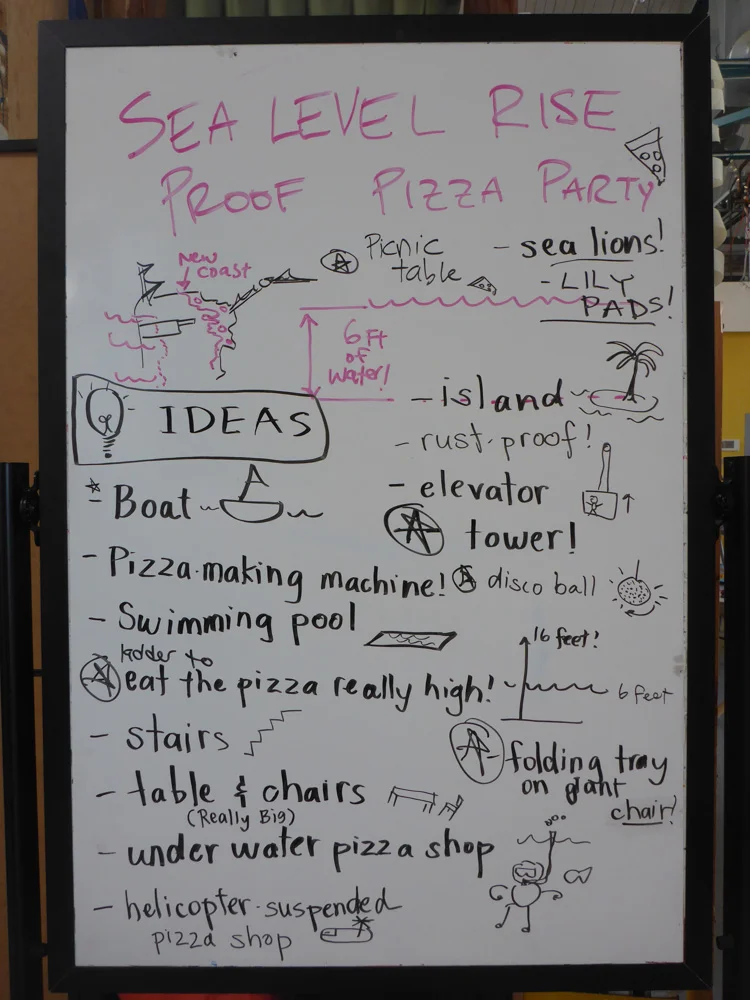 SEA LEVEL RISE
PROOF PIZZA PARTY
NEW
COAST
Picnic
table
- sea lions!
- LILY
PADS!
6 Ft
of
water!
IDEAS
- island
- rust-proof!
- Boat
- elevator
tower!
- Pizza-making machine!
disco ball
- Swimming pool
ladder to
eat the pizza really high!
16 feet!
6 feet
- stairs
folding tray
on giant
chair!
- table & chairs
(Really Big)
- under water pizza shop
- helicopter-suspended
pizza shop